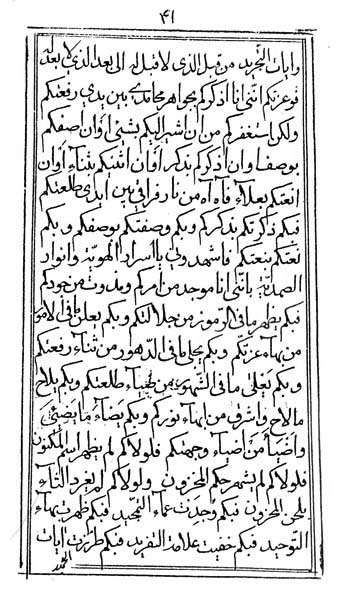 ٤١
وايات التجريد من قبل الذی لا قبل له الی بعد الذی لا بعد له
فوعزتكم اننی انا اذكركم بجواهر محامدی بين يدی رفعتكم
ولكن استغفركم من ان اشير اليكم بشئ او ان اصفكم
بوصف او ان اذكركم بذكر او ان اثنيكم بثناء او ان
انعتكم بعلاء فآه آه من نار فراقی بين ايدی طلعتكم
فبكم ذكرتكم بذكركم وبكم وصفتكم بوصفكم وبكم
نعتكم بنعتكم فاشهدونی يا اسرار الهوية وانوار
الصمدية باننی انا موجد من امركم ومذوت من جودكم
فبكم يظهر ما فی الرموز من جلالتكم وبكم يعلن ما فی الامور
من بهاء عزتكم وبكم يجلی ما فی الدهور من ثناء رفعتكم
وبكم يعلی ما فی الشهور من طلعتكم وبكم يلاح
ما لاح واشرق من ابهاء نوركم وبكم يضاء ما يضئ
واضيأ من اضياء وجهتكم فلولاكم لم يظهر اسم المكنون
فلولاكم لم يشهر حكم المخزون ولولاكم لم يغرد الثاء
بلحن المحزون فبكم وجدت عماء التمجيد فبكم ظهرت بهاء
التوحيد فبكم خفيت علامة التفريد فبكم طرزت ايات